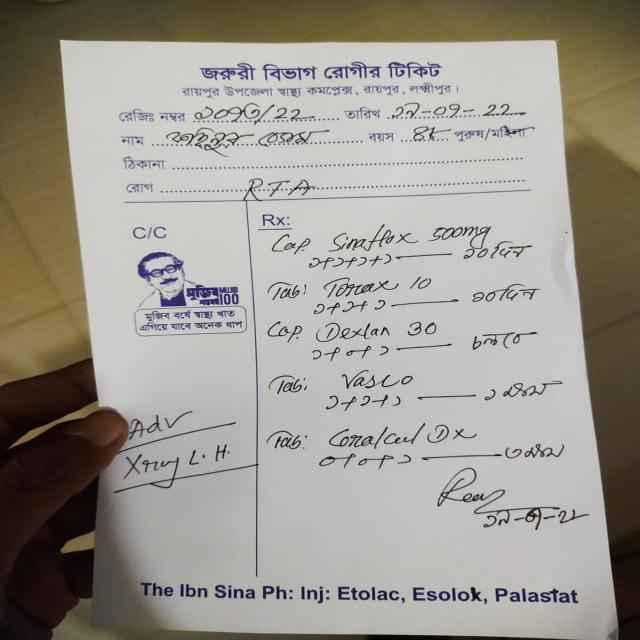 জরুরী বিভাগ রোগীর টিকিট
রায়পুর উপজেলা স্বাস্থ্য কমপ্লেক্স, রায়পুর, লক্ষ্মীপুর।
রেজিঃ নম্বর /22 তারিখ ১৯-০৭-২২
নাম বয়স পুরুষ/মহিলা
ঠিকানা
রোগ RTA
C/C
মুজিব MUJIB
শতবর্ষ 100
মুজিব বর্ষে স্বাস্থ্য খাত
এগিয়ে যাবে অনেক ধাপ
Adv
Xray L. H.
Rx:
Cap. Sinaflox 500mg
১+১+১+১ — ১০দিন
Tab: Torax 10
১+১+১ — ১০দিন
Cap. Dexlan 30
১+০+১ — চলবে
Tab: Vasco
১+১+১ — ১ মাস
Tab: Coralcal Dx
০+০+১ — ৩ মাস
The Ibn Sina Ph: Inj: Etolac, Esolok, Palastat